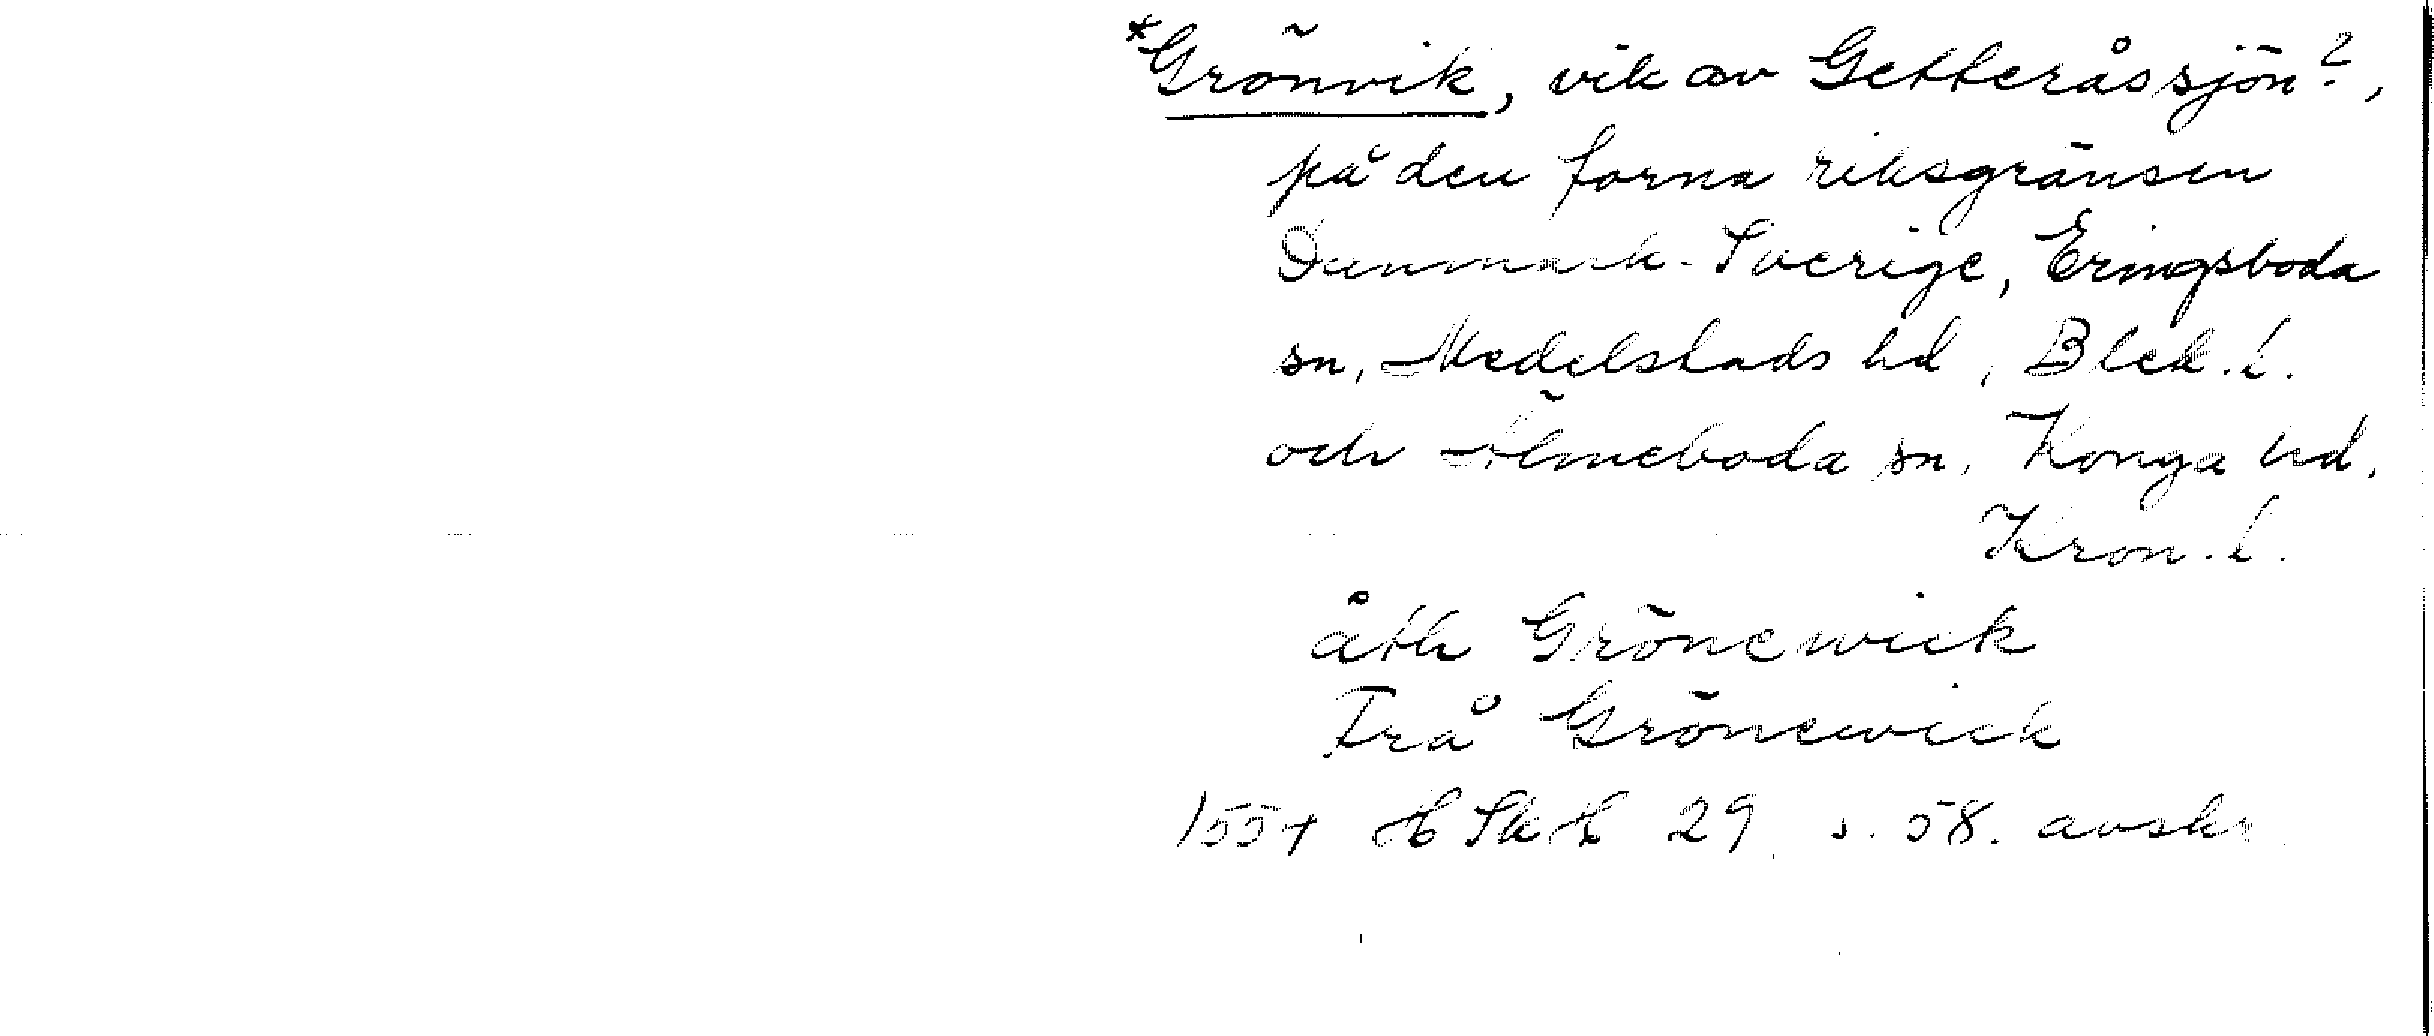 *Grönvik, vik av Getteråssjön?,
på den forna riksgränsen
Danmark-Sverige, Eringsboda
sn, Medelstads hd, Blek. l.
och Älmeboda sn, Konga hd.
Kron. l.
åth Grönewick
Frå Grönewick
HSkH 29 s. 58. avskr